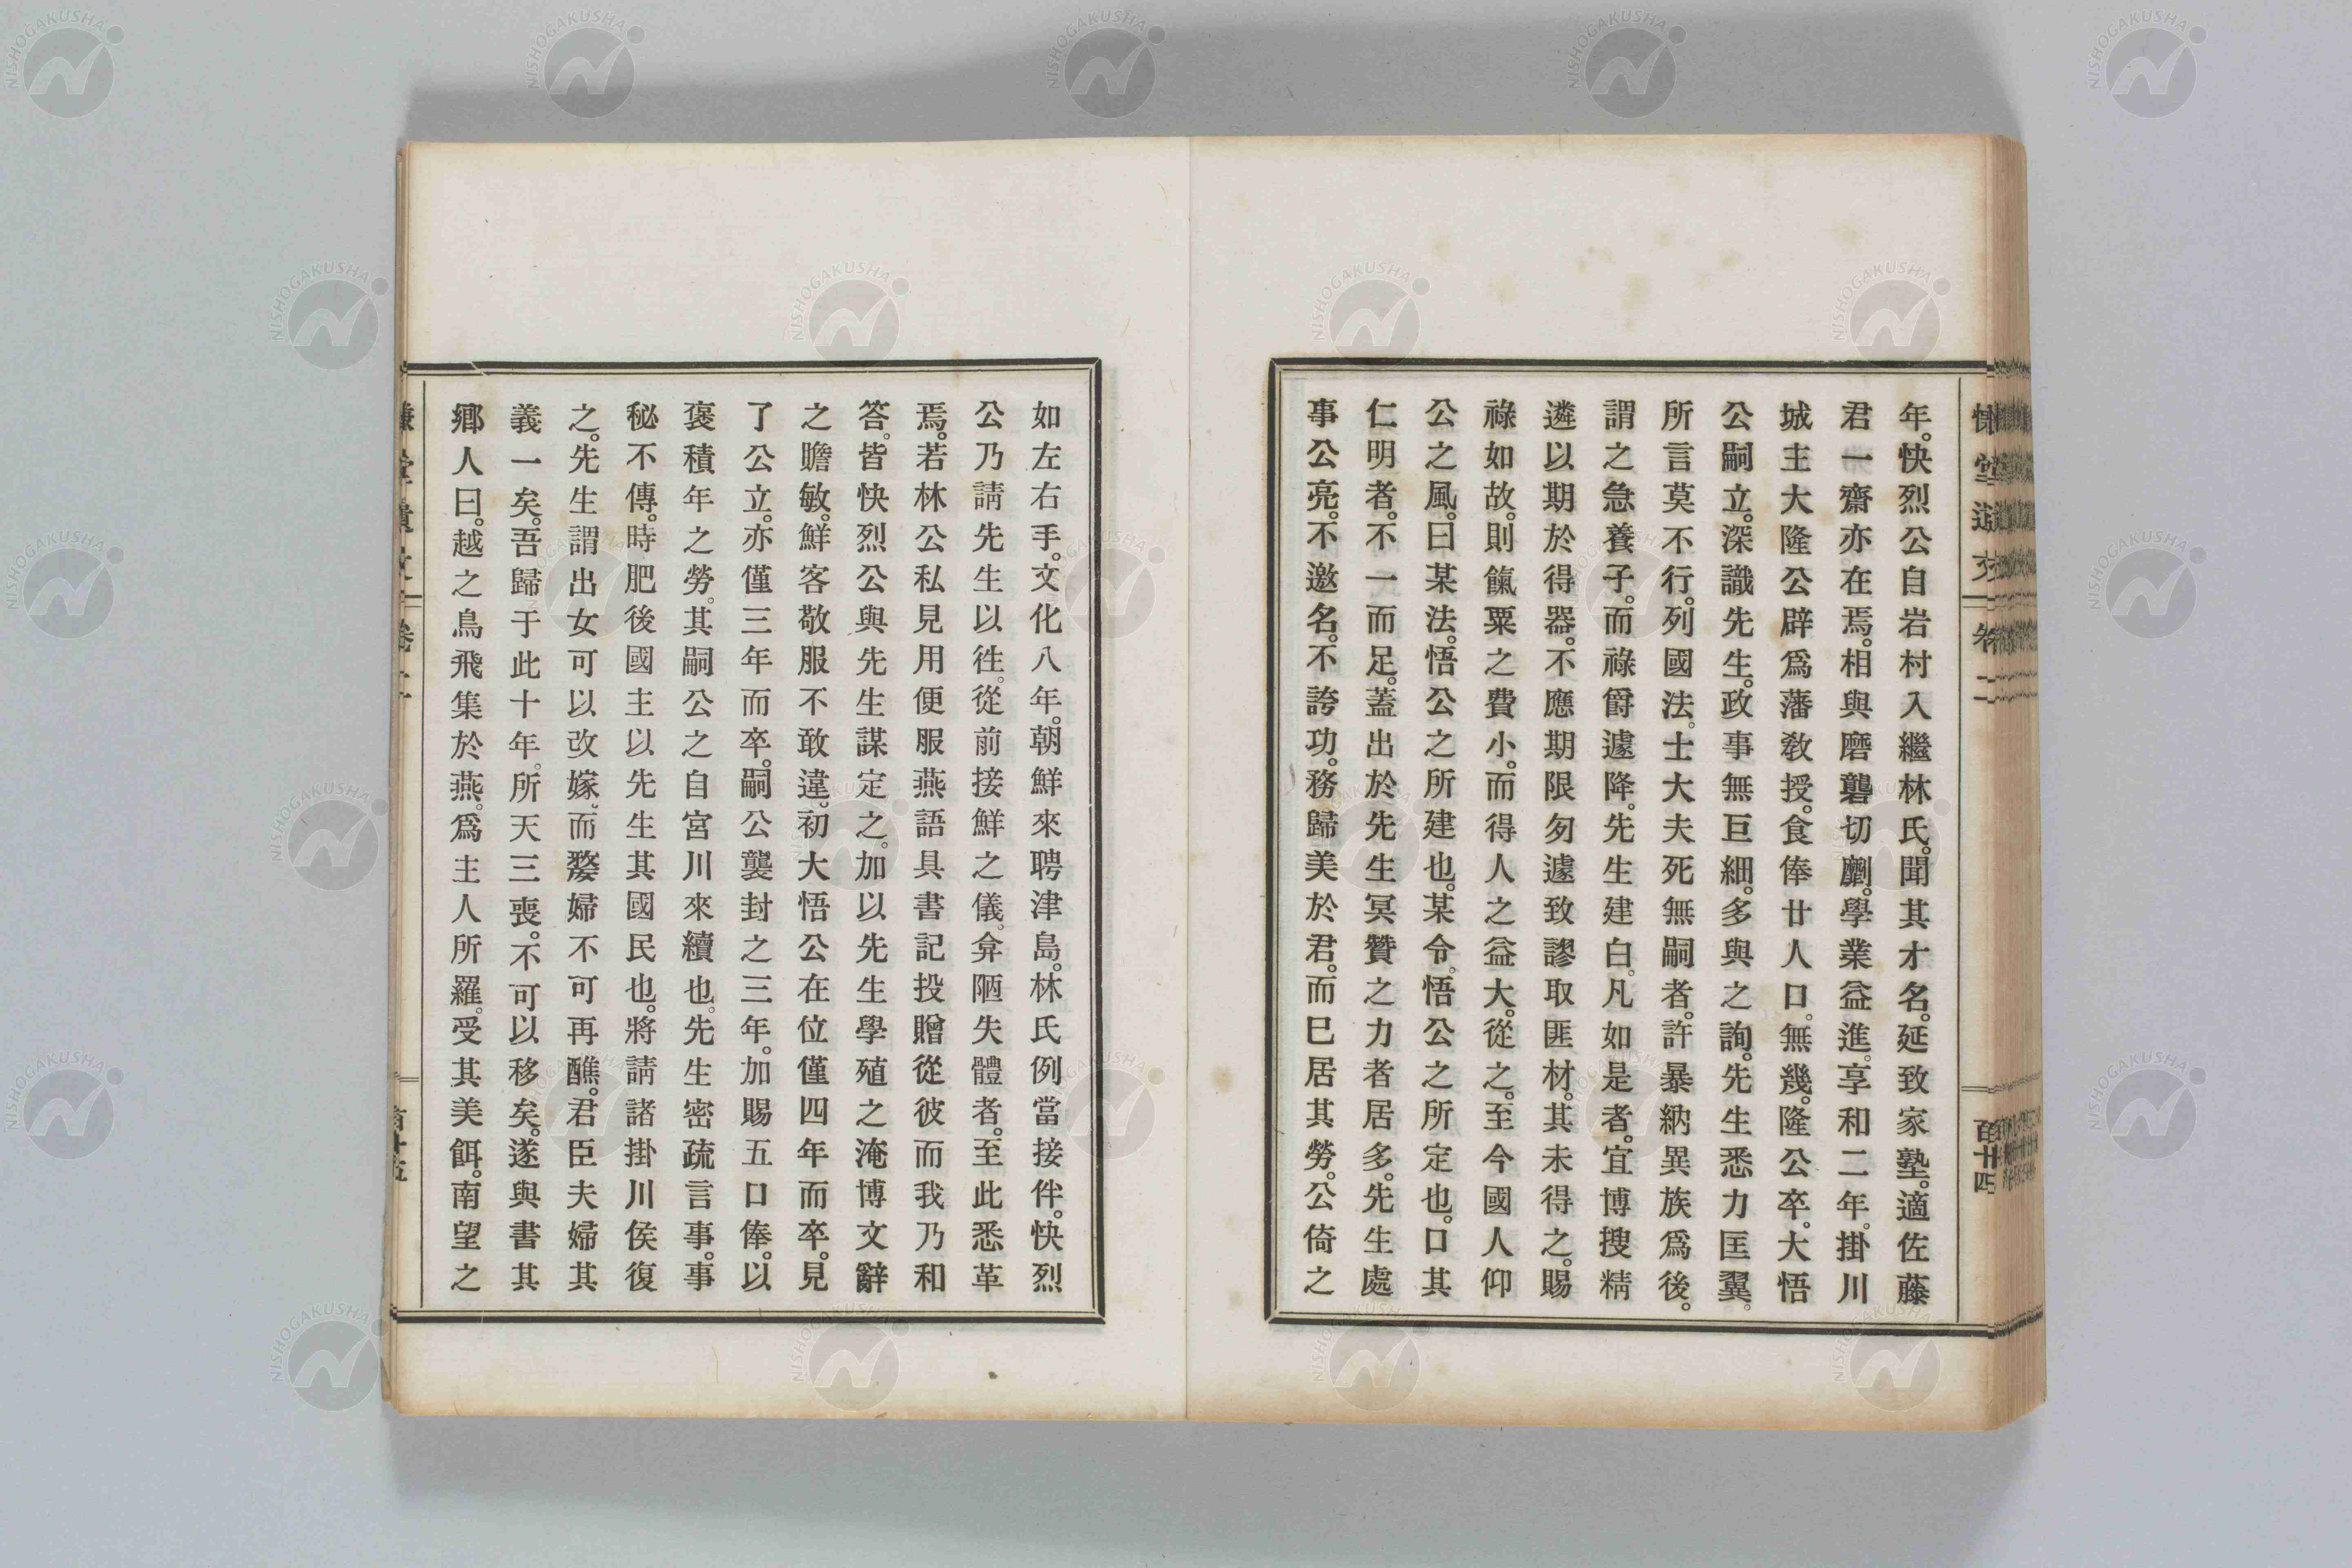 年。快烈公自岩村入繼林氏。聞其才名。延致家塾。適佐藤
君一齋亦在焉。相與磨礱切劘。學業益進。享和二年。掛川
城主大隆公辟爲藩教授。食俸廿人口。無幾。隆公卒。大悟
公嗣立。深識先生。政事無巨細。多與之詢。先生悉力匡翼。
所言莫不行。列國法。士大夫死無嗣者。許暴納異族爲後。
謂之急養子。而祿爵遽降。先生建白。凡如是者。宜博搜精
遴以期於得器。不應期限匆遽致謬取匪材。其未得之。賜
祿如故。則餼粟之費小。而得人之益大。從之。至今國人仰
公之風。曰某法。悟公之所建也。某令。悟公之所定也。口其
仁明者。不一而足。蓋出於先生冥贊之力者居多。先生處
事公亮。不邀名。不誇功。務歸美於君。而已居其勞。公倚之
如左右手。文化八年。朝鮮來聘津島。林氏例當接伴。快烈
公乃請先生以徃。從前接鮮之儀。弇陋失體者。至此悉革
焉。若林公私見用便服燕語具書記投贈從彼而我乃和
答。皆快烈公與先生謀定之。加以先生學殖之淹博文辭
之贍敏。鮮客敬服不敢違。初大悟公在位僅四年而卒。見
了公立。亦僅三年而卒。嗣公襲封之三年。加賜五口俸。以
褒積年之勞。其嗣公之自宮川來續也。先生密疏言事。事
秘不傳。時肥後國主以先生其國民也。將請諸掛川侯復
之。先生謂出女可以改嫁。而嫠婦不可再醮。君臣夫婦其
義一矣。吾歸于此十年。所天三喪。不可以移矣。遂與書其
鄕人曰。越之鳥飛集於燕。爲主人所羅。受其美餌。南望之
慊堂遺文 卷二 百廿四